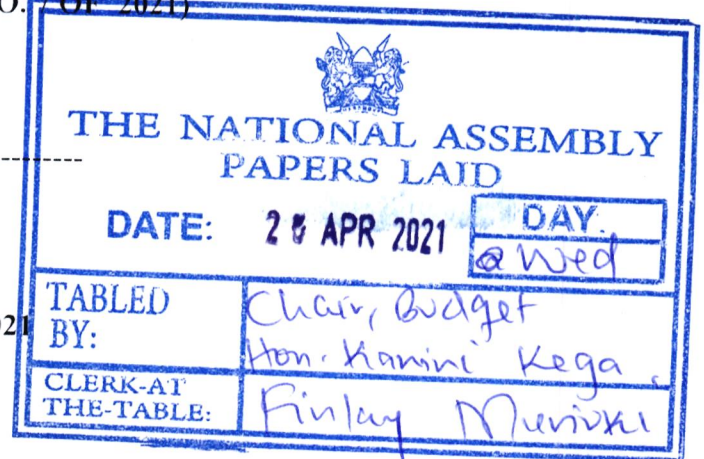 O. 7 OF 2021)
THE NATIONAL ASSEMBLY
PAPERS LAID
DATE: 28 APR 2021
DAY.
Wed
TABLED BY:
Chair, Budget
Hon. Kanini Kega.
021
CLERK-AT THE-TABLE:
Finlay Muriuki